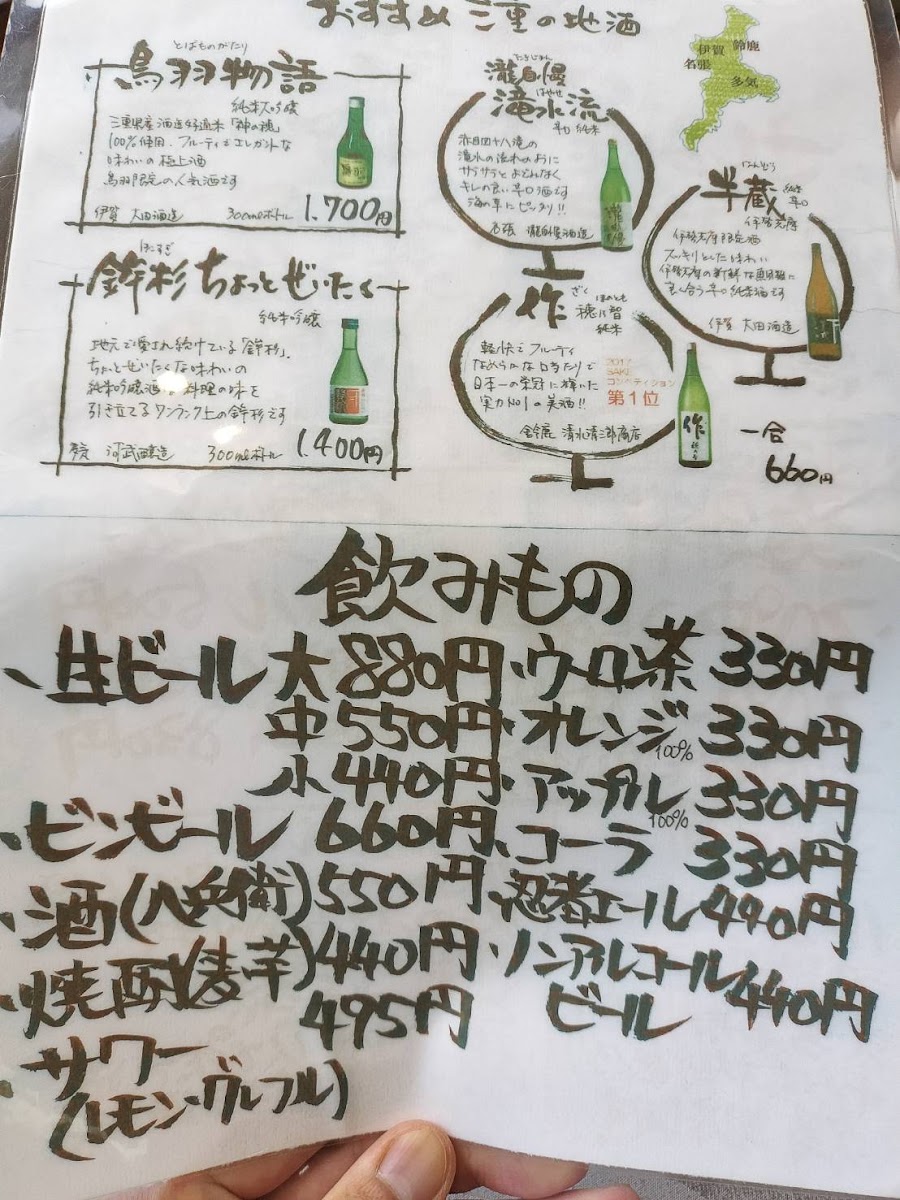 おすすめ 三重の地酒
伊賀
鈴鹿
名張
多気
とばものがたり
鳥羽物語
純米大吟醸
三重県産 酒造好適米「神の穂」
100%使用。フルーティでエレガントな
味わいの極上酒
鳥羽限定の人気酒です
伊賀 大田酒造 300mlボトル 1,700円
ほこすぎ
鉾杉 ちょっとぜいたく
純米吟醸
地元で愛され続けている「鉾杉」
ちょっとぜいたくな味わいの
純米吟醸酒 お料理の味を
引き立てるワンランク上の鉾杉です
多気 河武醸造 300mlボトル 1,400円
たきじまん
瀧自慢
はやせ
滝水流
辛口 純米
赤目四十八滝の
滝水の流れのように
サラサラとよどみなく
キレの良い辛口酒です
海の幸にピッタリ!!
名張 瀧自慢酒造
はんぞう
半蔵
純米
辛口
伊勢志摩
伊勢志摩限定酒
スッキリとした味わい
伊勢志摩の新鮮な魚貝類に
良く合う辛口純米酒です
伊賀 大田酒造
ざく
作
ほのとも
穂乃智
純米
軽快でフルーティ
なめらかな口当たりで
日本一の栄冠に輝いた
実力No1の美酒!!
2017
SAKE
コンペティション
第1位
鈴鹿 清水清三郎商店
一合
660円
飲みもの
、生ビール 大 880円
中 550円
小 440円
・ビンビール 660円
・酒(八兵衛) 550円
・焼酎(麦芋) 440円
・サワー 495円
(レモン・グレフル)
・ウーロン茶 330円
・オレンジ 100% 330円
・アップル 100% 330円
・コーラ 330円
・忍者エール 490円
・ノンアルコール
ビール 440円